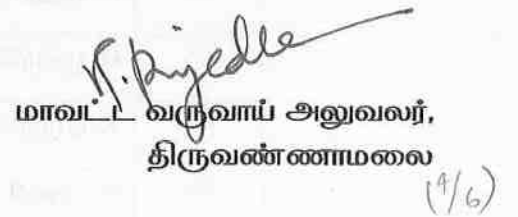 மாவட்ட வருவாய் அலுவலர்,
திருவண்ணாமலை
(4/6)